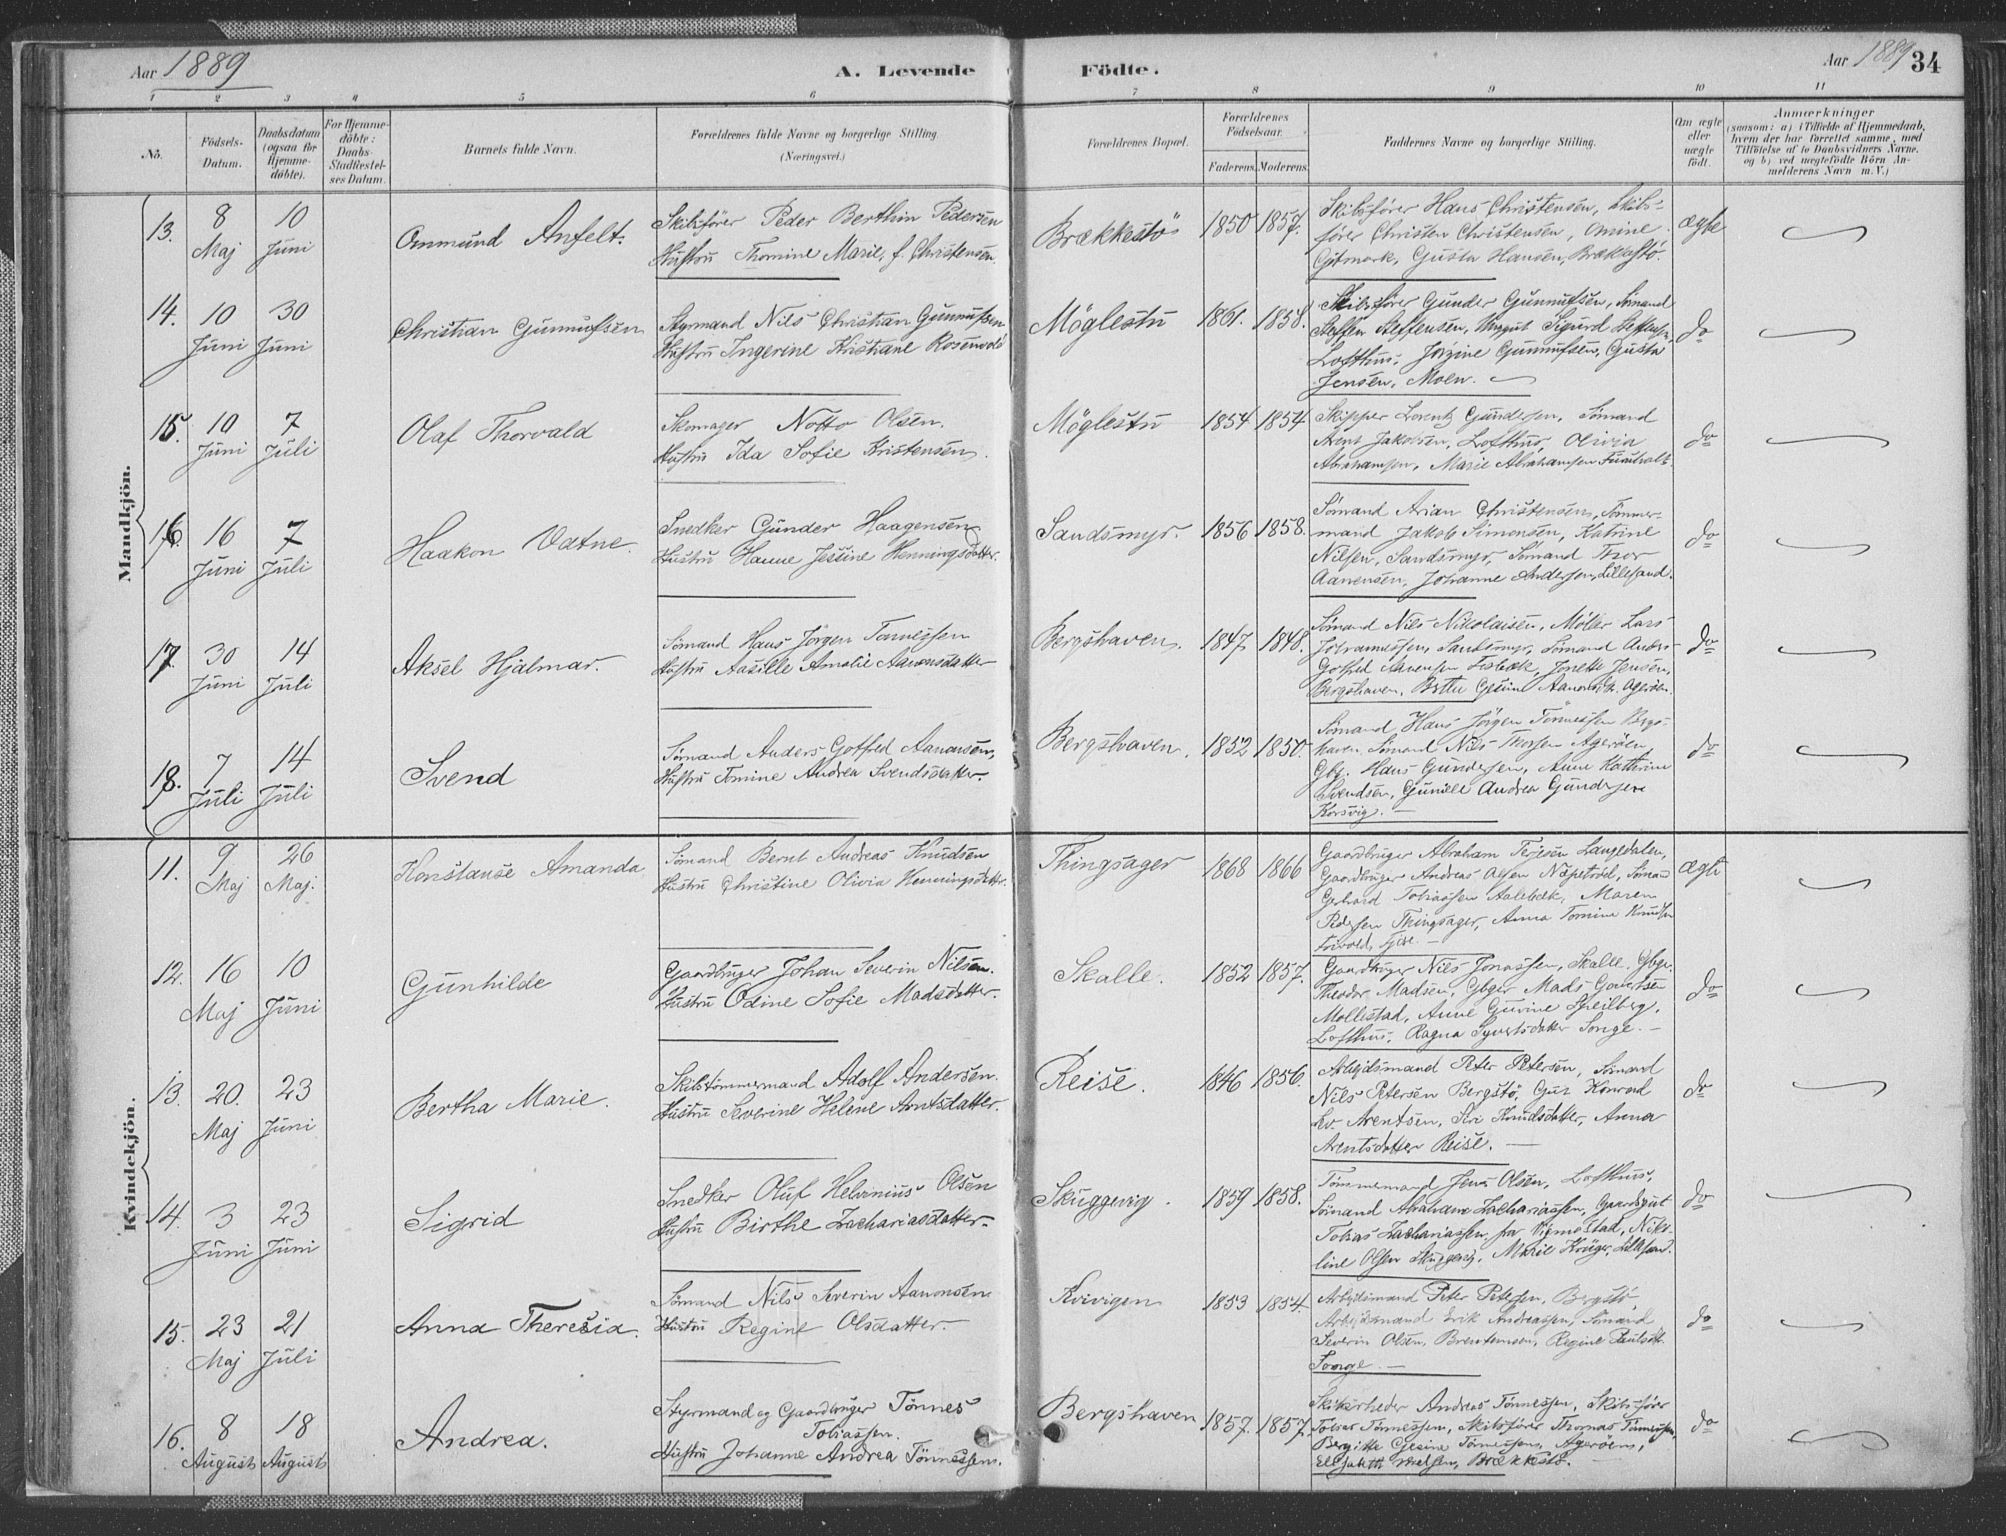 Aar 1889 A. Levende Födte. Aar 1889 34
1 2 3 4 5 6 7 8 9 10 11
No. Födsels-Datum. Daabsdatum (ogsaa for Hjemme-döbte). For Hjemme-döbte: Daabs-Stadfæstel-ses Datum. Barnets fulde Navn. Forældrenes fulde Navne og borgerlige Stilling. (Næringsvei.) Forældrenes Bopæl. Forældrenes Födselsaar. Faderens. Moderens. Faddernes Navne og borgerlige Stilling. Om ægte eller uægte födt. Anmærkninger (saasom: a) i Tilfælde af Hjemmedaab, hvem der har forrettet samme, med Tilföielse af to Daabsvidners Navne, og b) ved uægtefödte Börn An-melderens Navn m. V.)
Mandkjön.
13. 8 Maj 10 Juni Ommund Anfelt. Skibsfører Peder Berthin Pedersen
Hustru Thomine Marie, f. Christensen. Brækkestö 1850 1857.
Skibsfører Hans Christensen, Skibs-
fører Christen Christensen, Omine
Gitmark, Gusta Hansen, Brækkestö. ægte
14. 10 Juni 30 Juni Christian Gunnufsen Styrmand Nils Christian Gunnufsen
Hustru Ingerine Kristiane Rosenvold Möglestu 1861. 1858.
Skibsfører Gunder Gunnufsen, Sömand
Steffen Steffensen, Unggut Sigurd Steffensen,
Lofthus, Jörgine Gunnufsen, Gusta
Jensen, Moen. do
15. 10 Juni 7 Juli Olaf Thorvald Skomager Notto Olsen.
Hustru Ida Sofie Kristensen. Möglestu 1854 1854
Skipper Lorentz Gundersen, Sömand
Arent Jakobsen, Lofthus, Olivia
Abrahamsen, Marie Abrahamsen do
16. 16 Juni 7 Juli Haakon Vatne. Snedker Gunder Haagensen
Hustru Hanne Jesine Henningsdatter. Sandsmyr. 1856 1858.
Sömand Arian Christensen, Tömmer-
mand Jakob Simonsen, Katrine
Nilsen, Sandsmyr, Sömand Thor
Aanensen, Johanne Andersen, Lillesand. do
17. 30 Juni 14 Juli Aksel Hjalmar. Sömand Hans Jörgen Tönnessen
Hustru Aasille Amalie Aanonsdatter Bergshaven. 1847 1848.
Sömand Nils Nikolaisen, Möller Lars
Johannessen, Sandsmyr, Sömand Anders
Gotfred Aanensen, Jonette Jensen,
Bergshaven, Gesine Agerøen. do
18. 7 Juli 14 Juli Svend Sömand Anders Gotfred Aanonsen,
Hustru Tomine Andrea Svendsdatter. Bergshaven. 1852 1850.
Sömand Hans Jörgen Tönnessen Bergs-
haven, Sömand Nils Agerøen,
Gbg. Hans Gundersen, Anne Kathrine
Svendsen, Gunille Andrea Gundersen
Korsvig. do
Kvindekjön.
11. 9 Maj 26 Maj. Konstanse Amanda Sömand Bernt Andreas Knudsen
Hustru Christine Olivia Henningsdatter. Thingsager 1868 1866
Gaardbruger Abraham Terjesen Langedalen,
Gaardbruger Andreas Olsen Næpetröd, Sömand
Gerhard Tobiassen Aalebæk, Maren
Pedersen Thingsager, Anna Tomine Knudsen
ægte
12. 16 Maj 10 Juni Gunhilde Gaardbruger Johan Severin Nilsen.
Hustru Odine Sofie Madsdatter. Skalle. 1852 1857.
Gaardbruger Nils Jonassen, Skalle. Gbgr.
Theodor Madsen, Gbger Mads Govertsen
Mollestad, Anne Gurine Speilberg,
Lofthus, Ragna Syvertsdatter Songe. do
13. 20. Maj 23 Juni Bertha Marie. Skibstömmermand Adolf Andersen.
Hustru Severine Helene Arntsdatter. Reise. 1846 1856.
Arbejdsmand Peter Petersen, Sömand
Nils Petersen Bergstö, Gut Konrad
Arentsen, Siri Knudsdatter, Anna
Arentsdatter Reise. do
14. 3 Juni 23 Juni Sigrid Snedker Oluf Helvinius Olsen
Hustru Birthe Zachariasdatter. Skuggevig. 1859 1858.
Tömmermand Jens Olsen, Lofthus,
Sömand Abraham Zachariassen, Gaardsgut
Tobias Zachariassen fra Vigmostad, Niko-
line Olsen Skuggevig, Marie Krüger, Lillesand. do
15. 23 Maj 21 Juli Anna Theresia. Sömand Nils Severin Aanonsen
Hustru Regine Olsdatter. Kvivigen 1853 1854.
Arbejdsmand Peter Petersen, Bergstö,
Arbejdsmand Erik Andreassen, Sömand
Severin Olsen, Regine
Songe. do
16. 8 August 18 August Andrea. Styrmand og Gaardbruger Tönnes
Tobiassen.
Hustru Johanne Andrea Tönnessen. Bergshaven 1857. 1857.
Skibsrheder Andreas Tönnessen, Skibsförer
Tobias Tönnessen, Skibsförer Thomas Tönnessen,
Bergitte Gesine Tönnessen, Agerøen,
Elisabeth Nielsen, Brækkestö. do